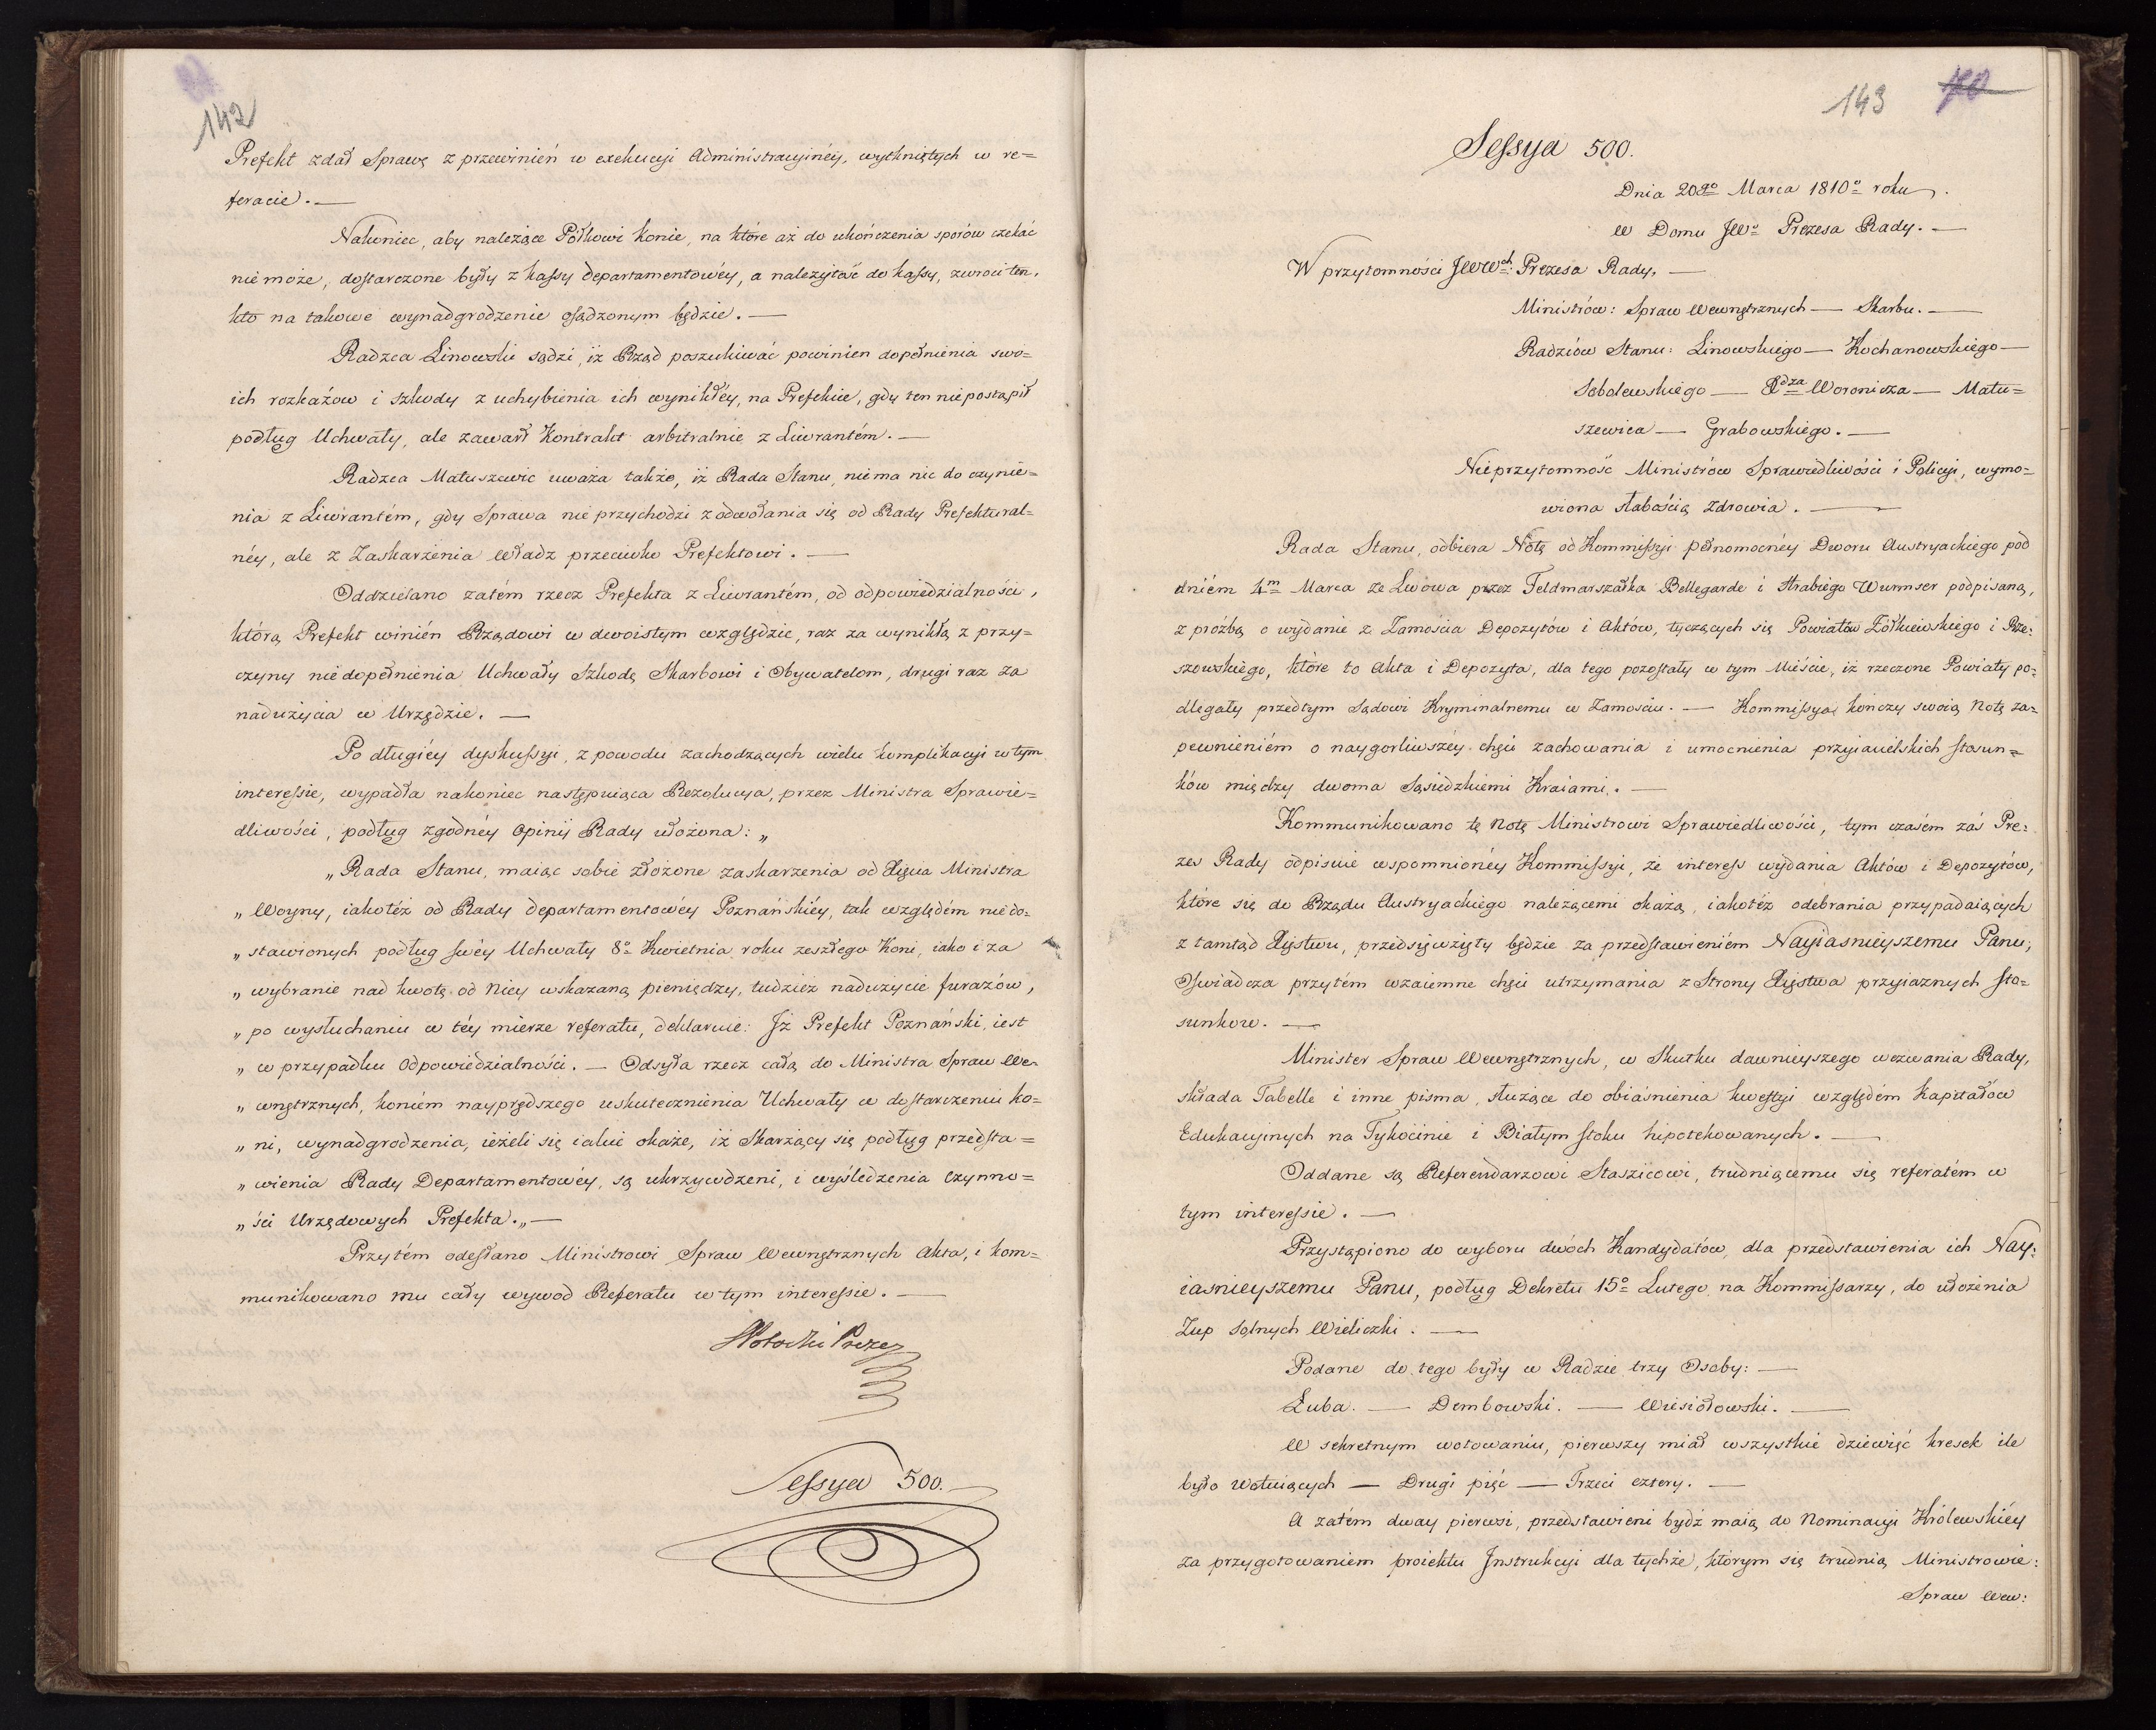 142
Prefekt zdał Sprawę z przewinień w exekucyi Administracyinéy, wytkniętych w re=
feracie. —
Nakoniec, aby należące Półkowi Konie, na które aż do ukończenia sporów czekać
nie może, dostarczone były z kassy departamentowéy, a należytość do kassy, zwroci ten,
kto na takowe wynadgrodzenie osądzonym będzie. —
Radzca Linowski sądzi, iż Rząd poszukiwać powinien dopełnienia swo=
ich rozkazów i szkody z uchybienia ich wynikłéy, na Prefekcie, gdy ten nie postąpił
podług Uchwały, ale zawarł Kontrakt arbitralnie z Liwrantém. —
Radzca Matuszewic uważa także, iż Rada Stanu, niema nic do czynie=
nia z Liwrantém, gdy Sprawa nie przychodzi z odwołania się od Rady Prefektural=
néy, ale z Zaskarżenia Władz przeciwko Prefektowi. —
Oddzielano zatém rzecz Prefekta z Liwrantém, od odpowiedzialności,
którą Prefekt winién Rządowi w dwoistym względzie, raz za wynikłą z przy=
czyny niedopełnienia Uchwały Szkodę Skarbowi i Obywatelom, drugi raz za
nadużycia w Urzędzie. —
Po długiéy dyskussyi, z powodu zachodzących wielu komplikacyi w tym
interessie, wypadła nakoniec następuiąca Rezolucya, przez Ministra Sprawie=
dliwości, podług zgodnéy Opinii Rady ułożona: „
„Rada Stanu, maiąc sobie złożone zaskarżenia od Xięcia Ministra
„Woyny, iakotéż od Rady departamentowéy Poznańskiéy, tak względém niedo=
„stawionych podług swéy Uchwały 8º Kwietnia roku zeszłego Koni, iako i za
„wybranie nad kwotę od Niey wskazaną pieniędzy, tudzież nadużycie furażów,
„po wysłuchaniu w téy mierze referatu, deklaruie: Iż Prefekt Poznański, iest
„w przypadku Odpowiedzialności. — Odsyła rzecz całą do Ministra Spraw We=
„wnętrznych, koniém nayprędszego uskutecznienia Uchwały w dostarczeniu ko=
„ni, wynadgrodzenia, ieżeli się iakie okaże, iż Skarżący się podług przedsta=
„wienia Rady Departamentowéy, są ukrzywdzeni, i wyśledzenia Czynno=
„ści Urzędowych Prefekta.„ —
Przytém odesłano Ministrowi Spraw Wewnętrznych Akta, i kom=
munikowano mu cały wywod Referatu w tym interessie. —
Potocki Prezes
Sessya 500.
143
Sessya 500.
Dnia 20go Marca 1810º roku.
W Domu JWº Prezesa Rady. —
W przytomności JWWch: Prezesa Rady. —
Ministrów: Spraw Wewnętrznych — Skarbu. —
Radziów Stanu: Linowskiego — Kochanowskiego —
Sobolewskiego — Xdza Woronicza — Matu=
szewica — Grabowskiego. —
Nieprzytomność Ministrów Sprawiedliwości i Policyi, wymo=
wiona słabością zdrowia. —
Rada Stanu, odbiera Notę od Kommissyi pełnomocnéy Dworu Austryackiego pod
dniém 4m Marca ze Lwowa przez Feldmarszałka Bellegarde i Hrabiego Wurmser podpisaną,
z prożbą o wydanie z Zamościa Depozytów i Aktów, tyczących się Powiatów Żółkiewskiego i Rze=
szowskiego, które to Akta i Depozyta, dla tego pozostały w tym Mieście, iż rzeczone Powiaty po=
dlegały przedtym Sądowi Kryminalnemu w Zamościu. — Kommissya kończy swoią Notę za=
pewnieniém o naygorliwszéy chęci zachowania i umocnienia przyiacielskich stosun=
ków między dwoma Sąsiedzkiemi Kraiami. —
Kommunikowano tę Notę Ministrowi Sprawiedliwości, tym czasém zaś Pre=
zes Rady odpisuie wspomnionéy Kommissyi, że interess wydania Aktów i Depozytów,
które się do Rządu Austryackiego należącemi okażą, iakotéż odebrania przypadaiących
z tamtąd Xięstwu, przedsięwzięty będzie za przedstawieniém Nayiasnieyszemu Panu;
Oświadcza przytém wzaiemne chęci utrzymania z Strony Xięstwa przyiaznych sto=
sunkow. —
Minister Spraw Wewnętrznych, w Skutku dawnieyszego wezwania Rady,
składa Tabelle i inne pisma, służące do obiasnienia kwestyi względém Kapitałów
Edukacyinych na Tykocinie i Białym stoku hipotekowanych. —
Oddane są Referendarzowi Staszicowi, trudniącemu się referatém w
tym interessie. —
Przystąpiono do wyboru dwóch Kandydatów, dla przedstawienia ich Nay=
iasnieyszemu Panu, podług Dekretu 15º Lutego na Kommissarzy, do ułożenia
Żup Solnych Wieliczki. —
Podane do tego były w Radzie trzy Osoby: —
Łuba. — Dembowski. — Wiesiołowski. —
W sekretnym wotowaniu, pierwszy miał wszystkie dziewięć kresek ile
było wotuiących — Drugi pięć — Trzeci cztery. —
A zatém dway pierwsi, przedstawieni bydź maią do Nominacyi Królewskiéy
za przygotowaniem proiektu Instrukcyi dla tychże, którym się trudnią Ministrowie:
Spraw Wew: